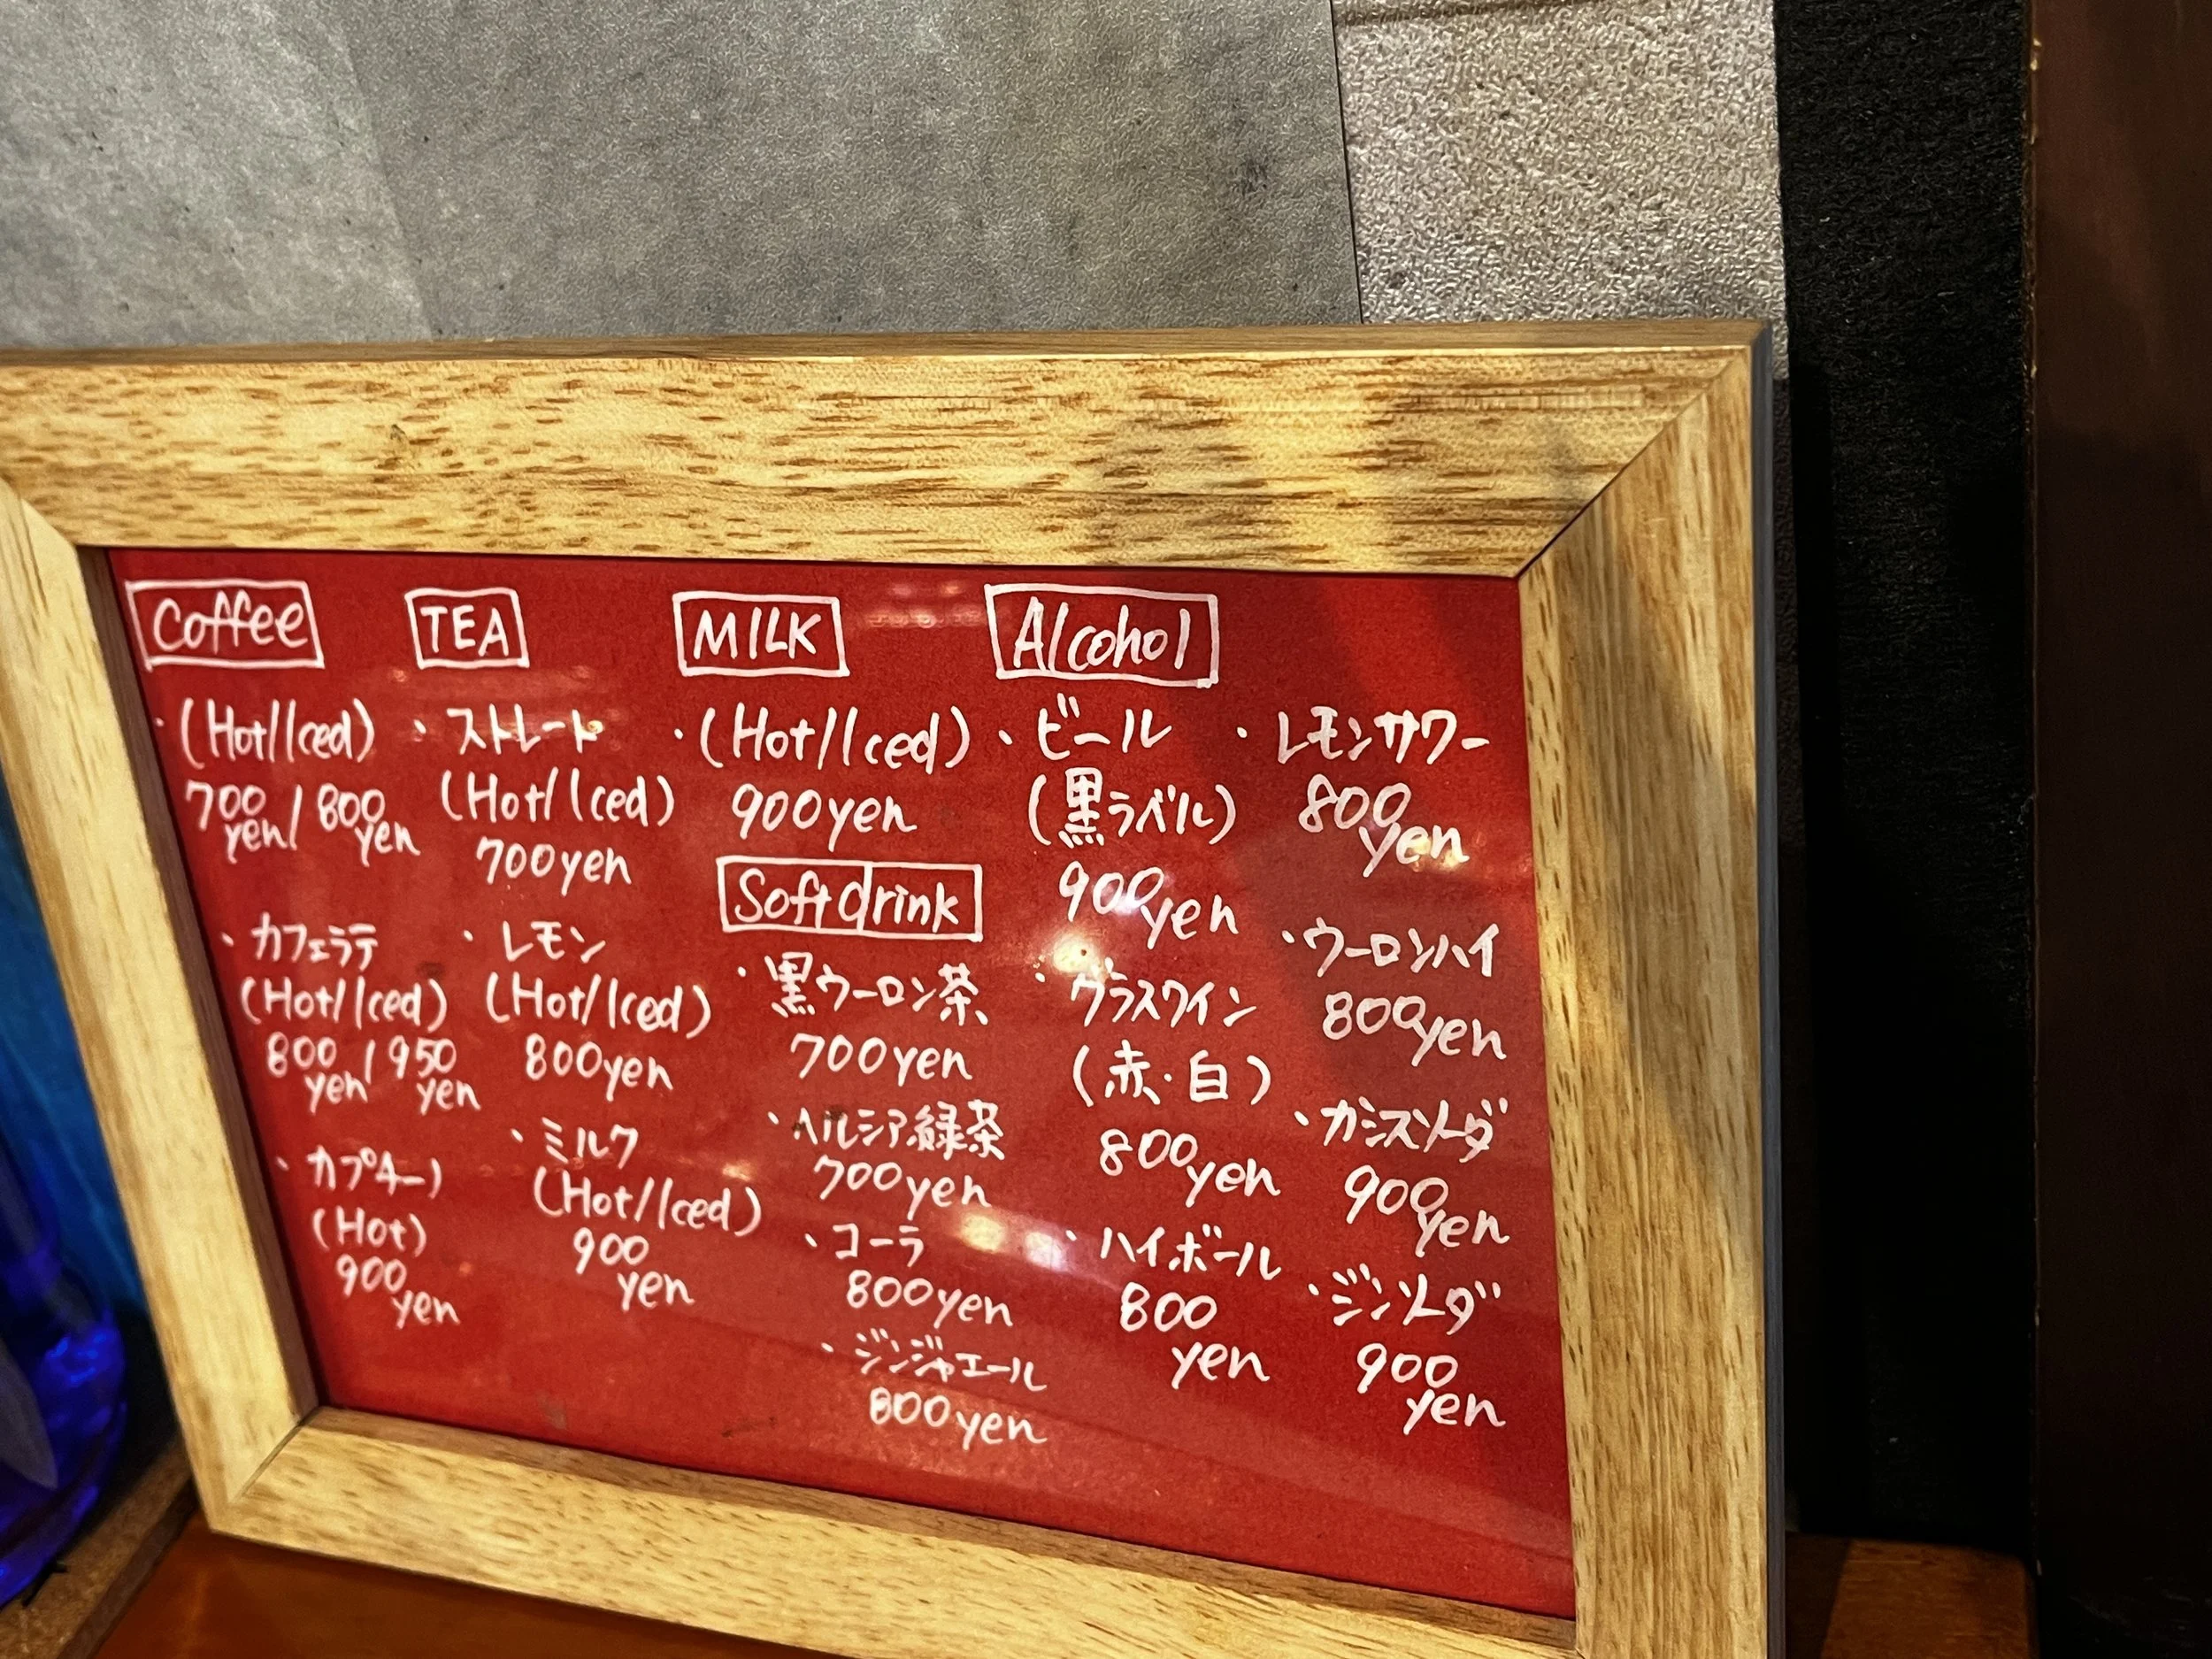 Coffee
・(Hot/Iced)
700yen/800yen
・カフェラテ
(Hot/Iced)
800yen/950yen
・カプチーノ
(Hot)
900yen
TEA
・ストレート
(Hot/Iced)
700yen
・レモン
(Hot/Iced)
800yen
・ミルク
(Hot/Iced)
900
yen
MILK
・(Hot/Iced)
900yen
Softdrink
・黒ウーロン茶
700yen
・ヘルシア緑茶
700yen
・コーラ
800yen
・ジンジャエール
800yen
Alcohol
・ビール
(黒ラベル)
900yen
・グラスワイン
(赤・白)
800yen
・ハイボール
800
yen
・レモンサワー
800
yen
・ウーロンハイ
800yen
・カシスソーダ
900yen
・ジンソーダ
900
yen